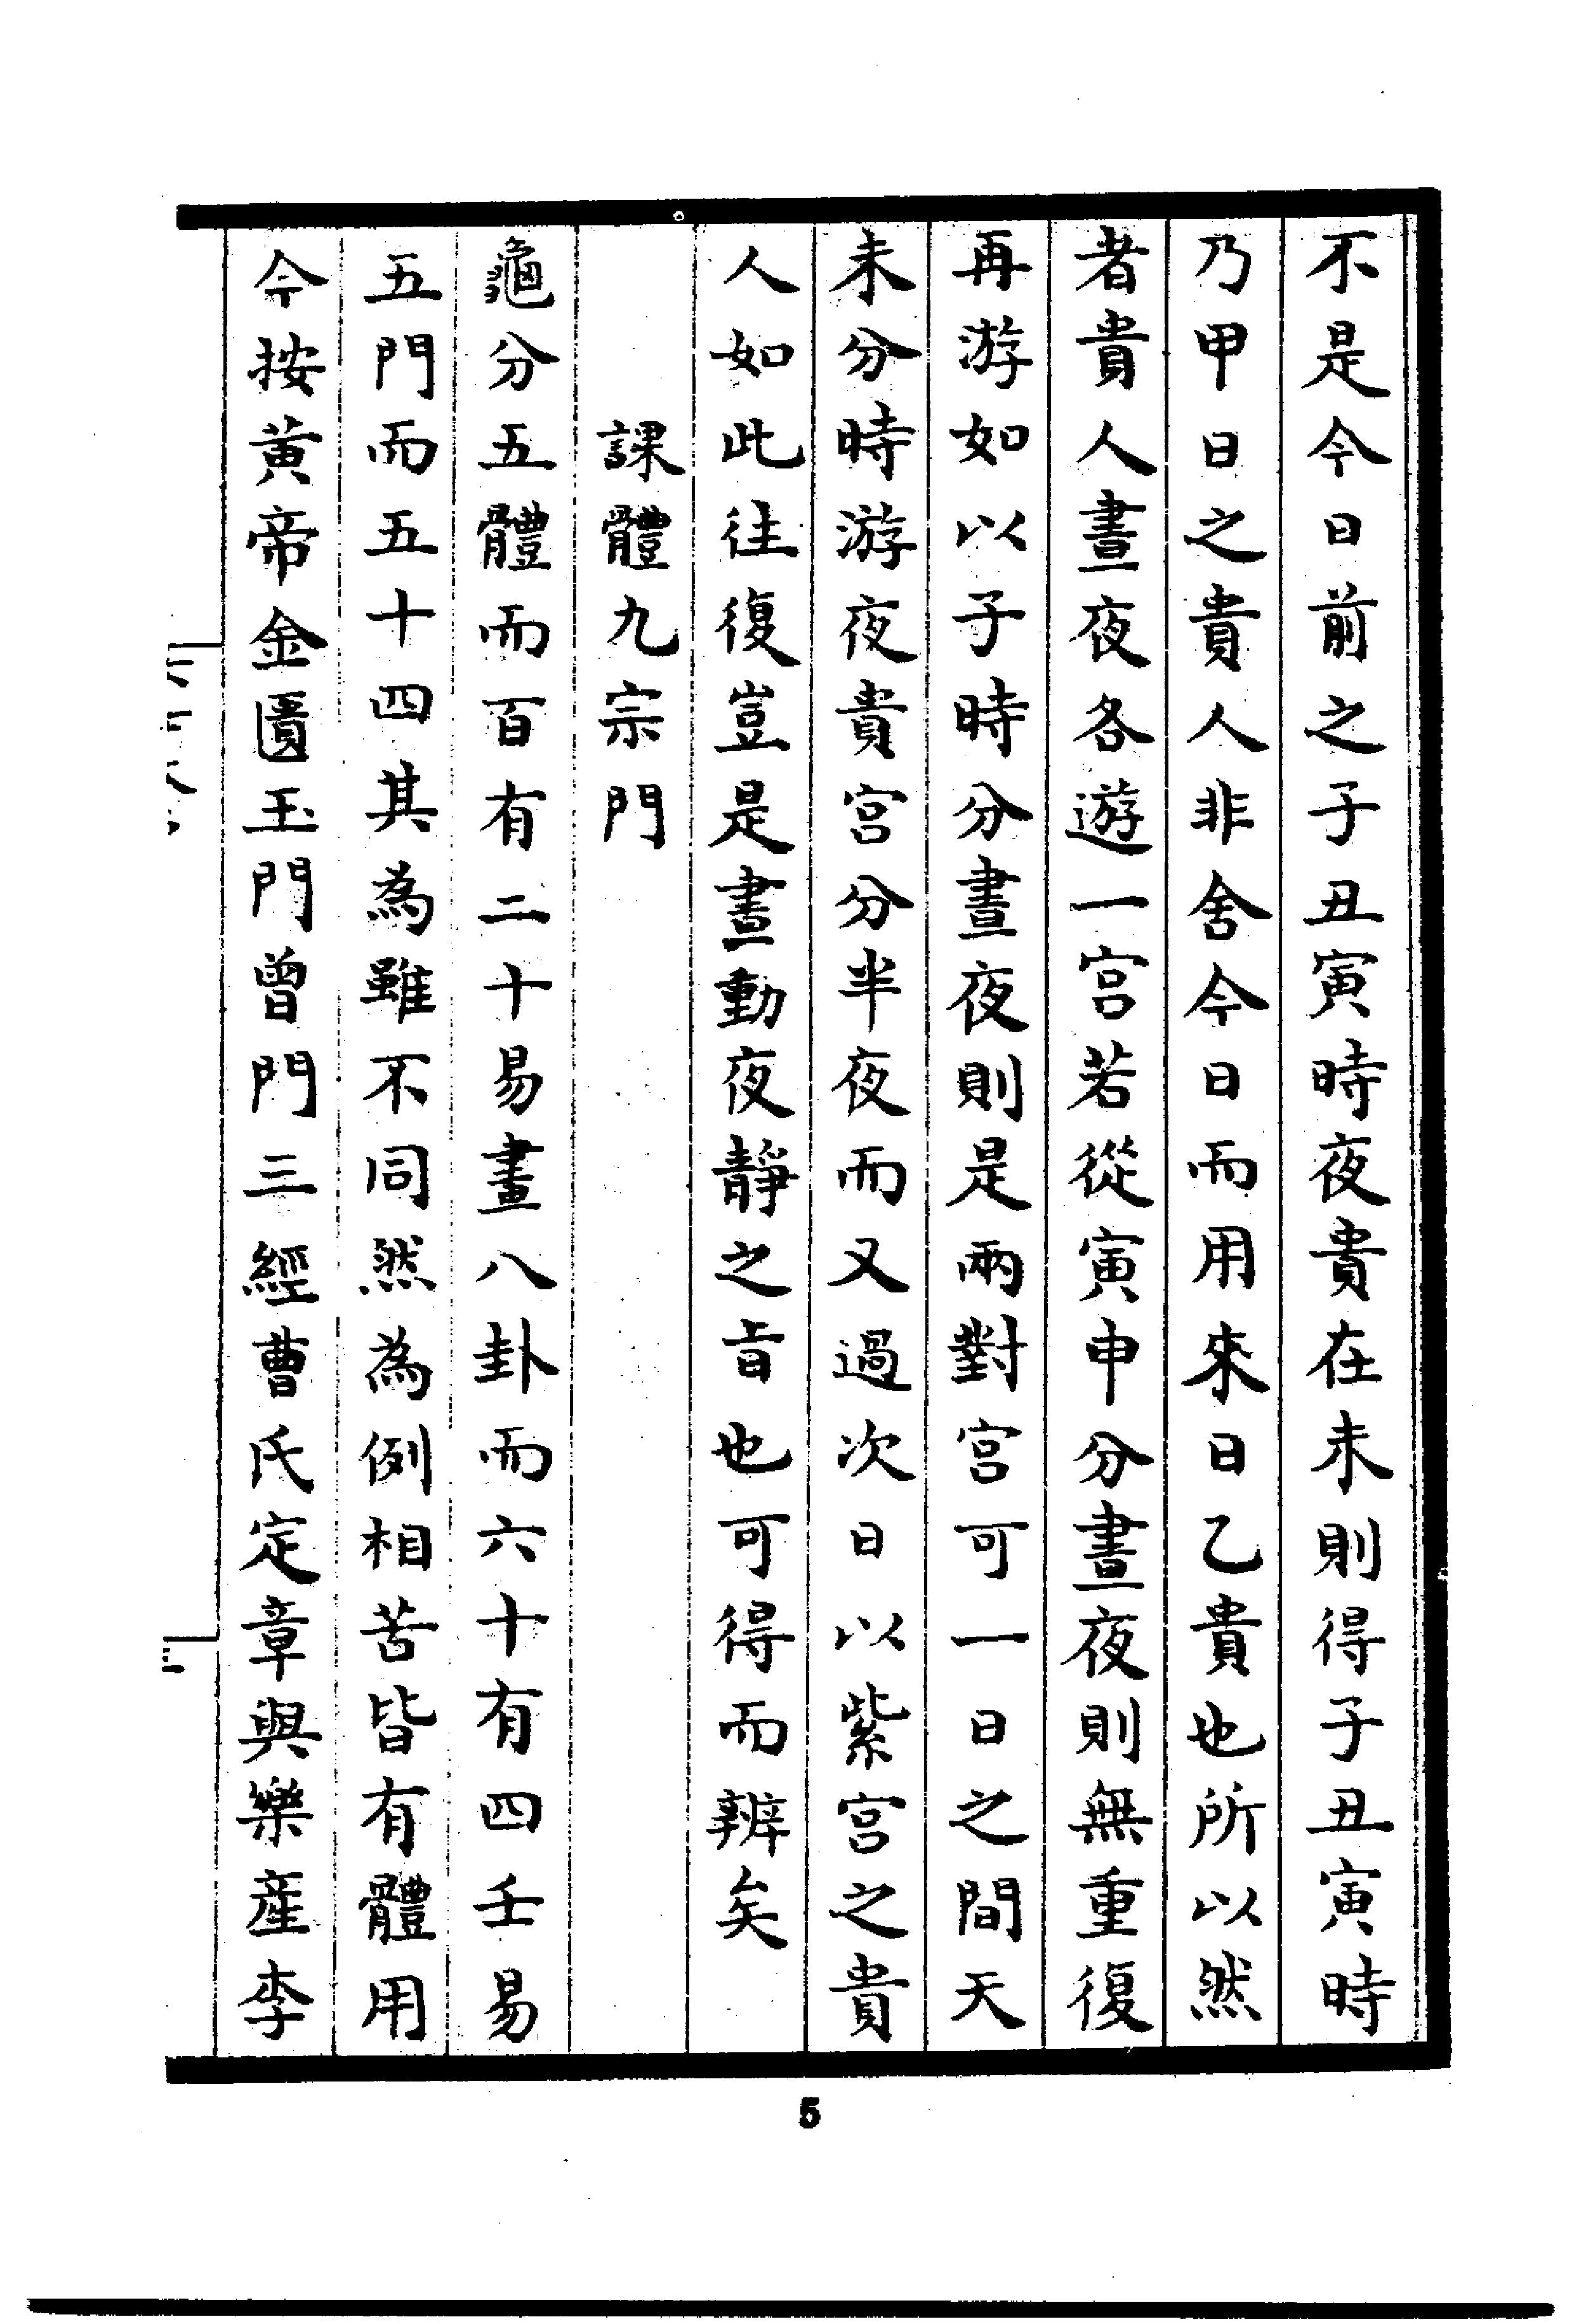 不是今日前之子丑寅時夜貴在未則得子丑寅時
乃甲日之貴人非舍今日而用來日乙貴也所以然
者貴人晝夜各遊一宫若從寅申分晝夜則無重復
再游如以子時分晝夜則是兩對宫可一日之間天
未分時游夜貴宫分半夜而又過次日以紫宫之貴
人如此往復豈是晝動夜靜之旨也可得而辨矣
課體九宗門
龜分五體而百有二十易畫八卦而六十有四壬易
五門而五十四其為雖不同然為例相苦皆有體用
今按黄帝金匱玉門曾門三經曹氏定章與樂產李
5